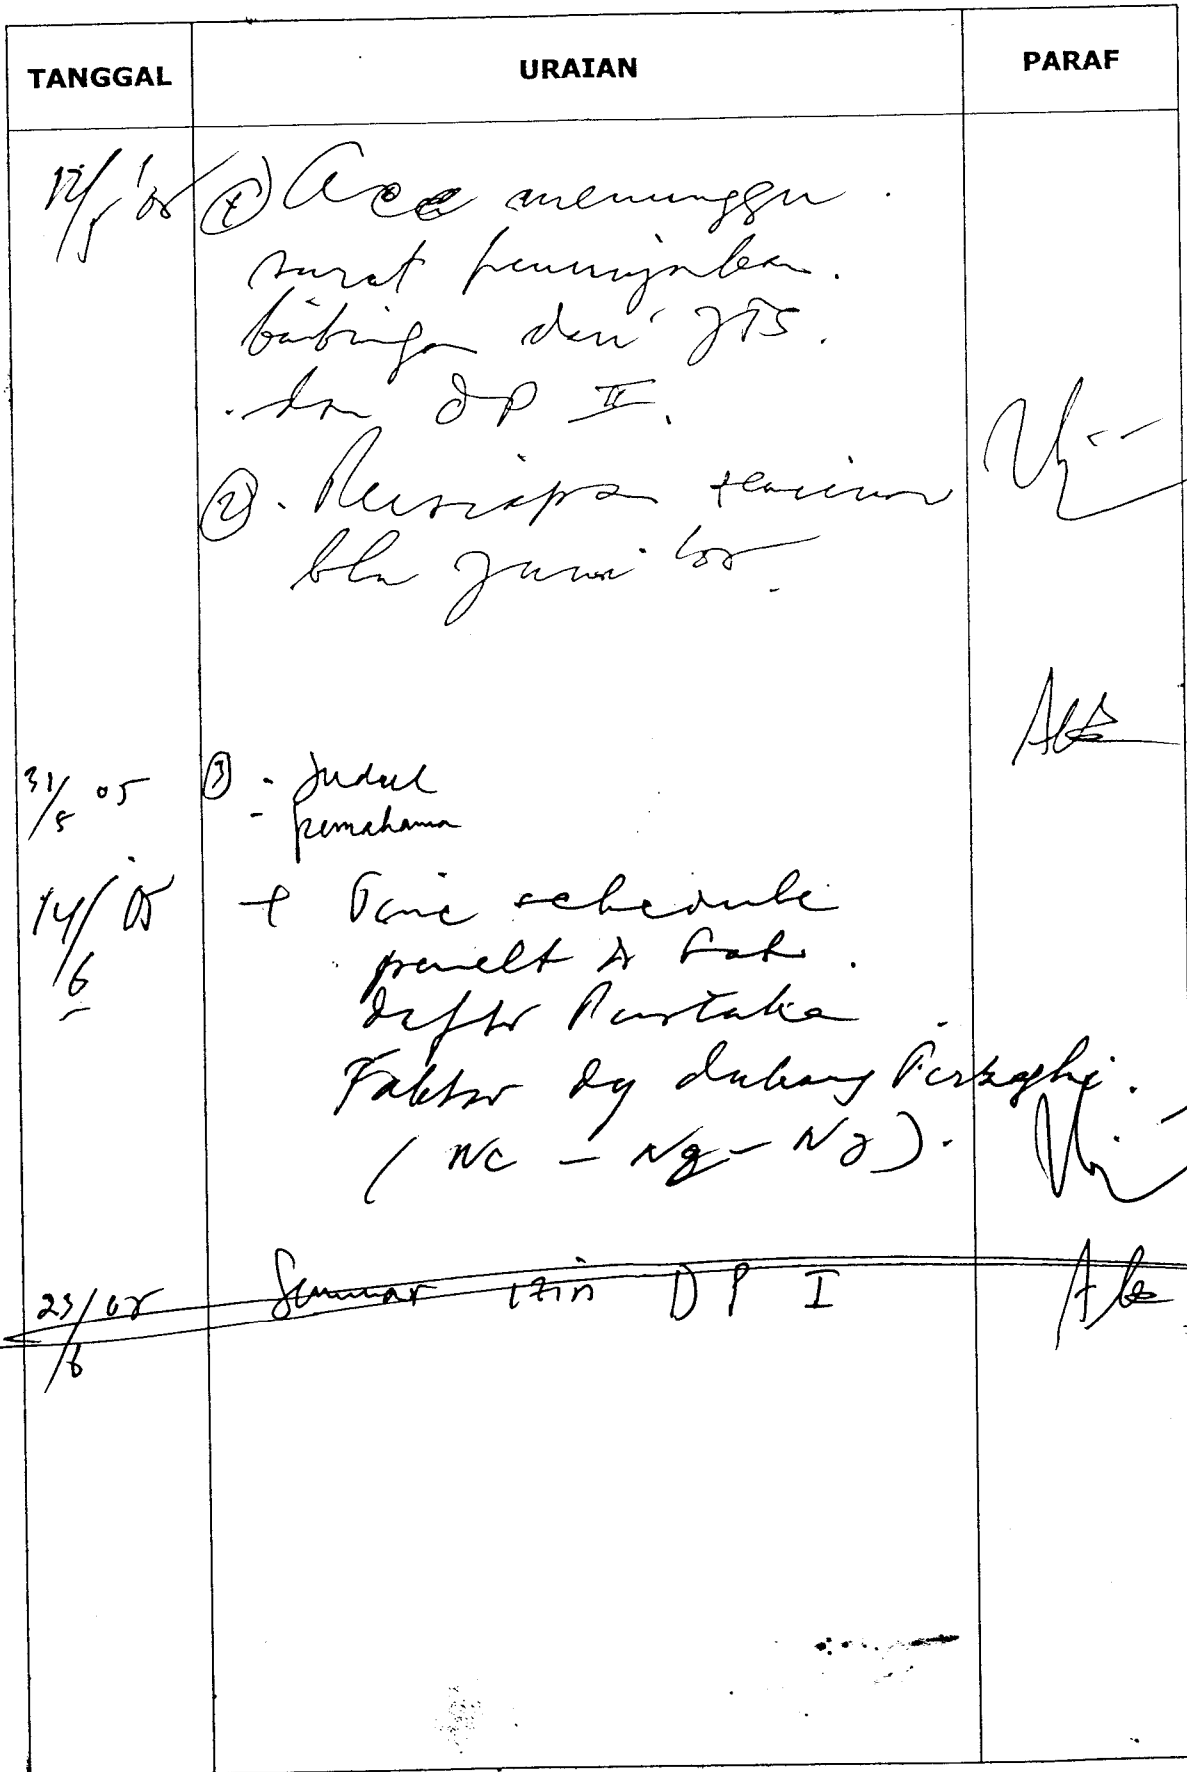 TANGGAL URAIAN PARAF
12/5 '05 ① Acc menunggu
surat penunjukan
bimbingan dari JTS.
dan DP II.
②. Persiapan seminar
bln Juni '05
31/5 05 ③ - Judul
- pemahaman
14/6 05 + Time schedule
penelt
Daftar Pustaka
Faktor dy dukung Terzaghi.
(Nc - Nq - Nγ).
23/6 05 Seminar izin DP I